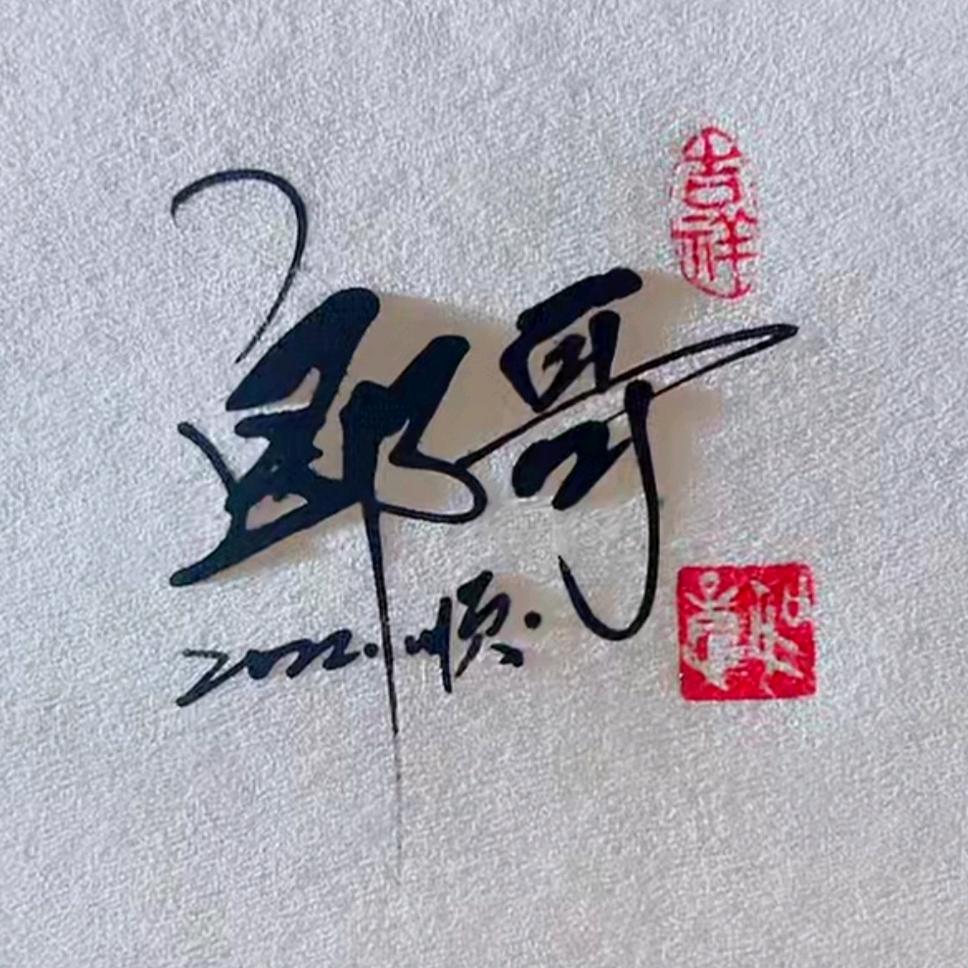 吉祥
郎哥
2022.顺.